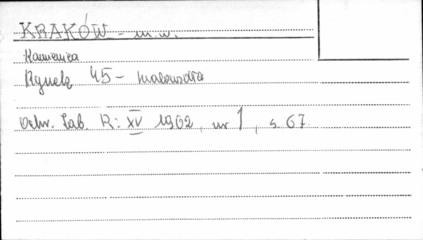 KRAKÓW - m.w.
Kamienica
Rynek 45 -
Ochr. Zab. R: XV 1962, nr 1, s. 67.